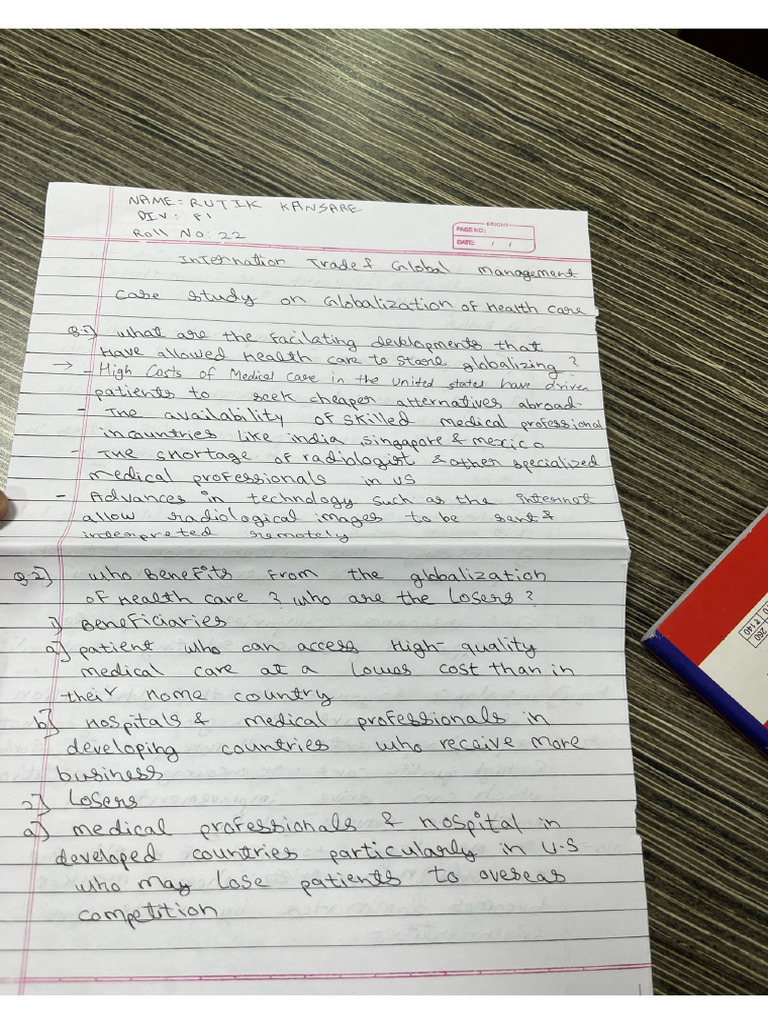 NAME: RUTIK KANSARE
DIV: F1
Roll No: 22
ERIGHT
PAGE NO.:
DATE: / /
Internation Trade & Global management
Case study on Globalization of Health care
Q.1) what are the facilating developments that
have allowed health care to store globalizing?
→ - High Costs of Medical Case in the United states have driven
patients to seek cheaper alternatives abroad.
- The availability of skilled medical professional
in countries like india, singapore & mexico
- The shortage of radiologist & other specialized
medical professionals in US
- Advances in technology such as the internet
allow radiological images to be sent &
interpreted remotely
Q.2) who Benefits from the globalization
of health care? who are the losers?
1) Beneficiaries
a) patient who can access High-quality
medical care at a lower cost than in
their home country
b) Hospitals & medical professionals in
developing countries who receive more
business
2) Losers
a) medical professionals & hospital in
developed countries particularly in U.S
who may lose patients to overseas
competition
260
₹140